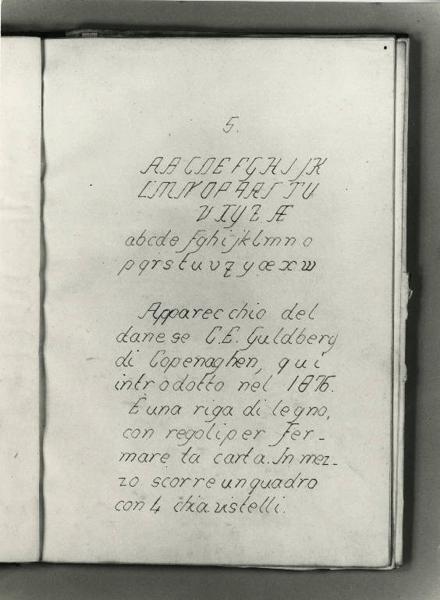 5.
A B C D E F G H I J K
L M N O P Q R S T U
V X Y Z Æ
a b c d e f g h i j k l m n o
p q r s t u v z y æ x w
Apparecchio del
danese C. E. Guldberg
di Copenaghen, qui
introdotto nel 1876.
È una riga di legno,
con regoli per fer-
mare la carta. In mez-
zo scorre un quadro
con 4 chiavistelli.